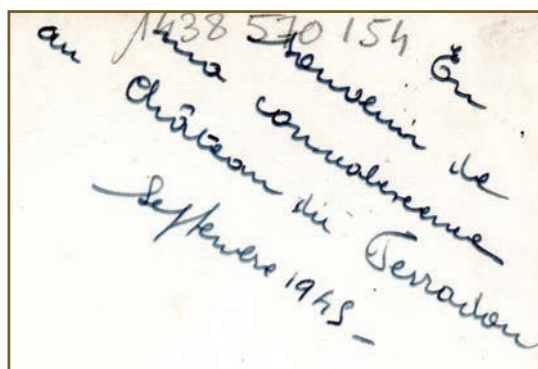 1438 570 154
En
Souvenir de
ma convalescence
au Château du Terradou
Septembre 1945 -